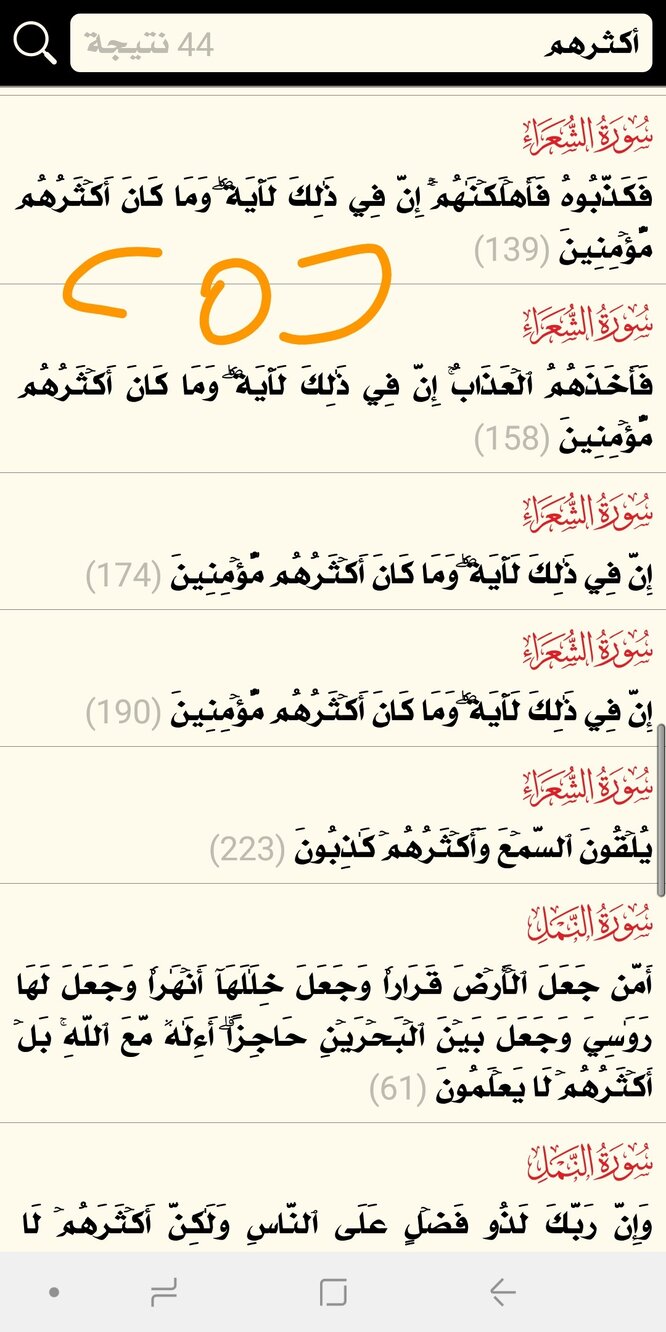 أكثرهم
44 نتيجة
سُورَةُ الشُّعَرَاءِ
فَكَذَّبُوهُ فَأَهۡلَكۡنَٰهُمۡۚ إِنَّ فِي ذَٰلِكَ لَأٓيَةٗۖ وَمَا كَانَ أَكۡثَرُهُم
مُّؤۡمِنِينَ (139)
سُورَةُ الشُّعَرَاءِ
فَأَخَذَهُمُ ٱلۡعَذَابُۚ إِنَّ فِي ذَٰلِكَ لَأٓيَةٗۖ وَمَا كَانَ أَكۡثَرُهُم
مُّؤۡمِنِينَ (158)
سُورَةُ الشُّعَرَاءِ
إِنَّ فِي ذَٰلِكَ لَأٓيَةٗۖ وَمَا كَانَ أَكۡثَرُهُم مُّؤۡمِنِينَ (174)
سُورَةُ الشُّعَرَاءِ
إِنَّ فِي ذَٰلِكَ لَأٓيَةٗۖ وَمَا كَانَ أَكۡثَرُهُم مُّؤۡمِنِينَ (190)
سُورَةُ الشُّعَرَاءِ
يُلۡقُونَ ٱلسَّمۡعَ وَأَكۡثَرُهُمۡ كَٰذِبُونَ (223)
سُورَةُ النَّمۡلِ
أَمَّن جَعَلَ ٱلۡأَرۡضَ قَرَارٗا وَجَعَلَ خِلَٰلَهَآ أَنۡهَٰرٗا وَجَعَلَ لَهَا
رَوَٰسِيَ وَجَعَلَ بَيۡنَ ٱلۡبَحۡرَيۡنِ حَاجِزًاۗ أَءِلَٰهٞ مَّعَ ٱللَّهِۚ بَلۡ
أَكۡثَرُهُمۡ لَا يَعۡلَمُونَ (61)
سُورَةُ النَّمۡلِ
وَإِنَّ رَبَّكَ لَذُو فَضۡلٍ عَلَى ٱلنَّاسِ وَلَٰكِنَّ أَكۡثَرَهُمۡ لَا